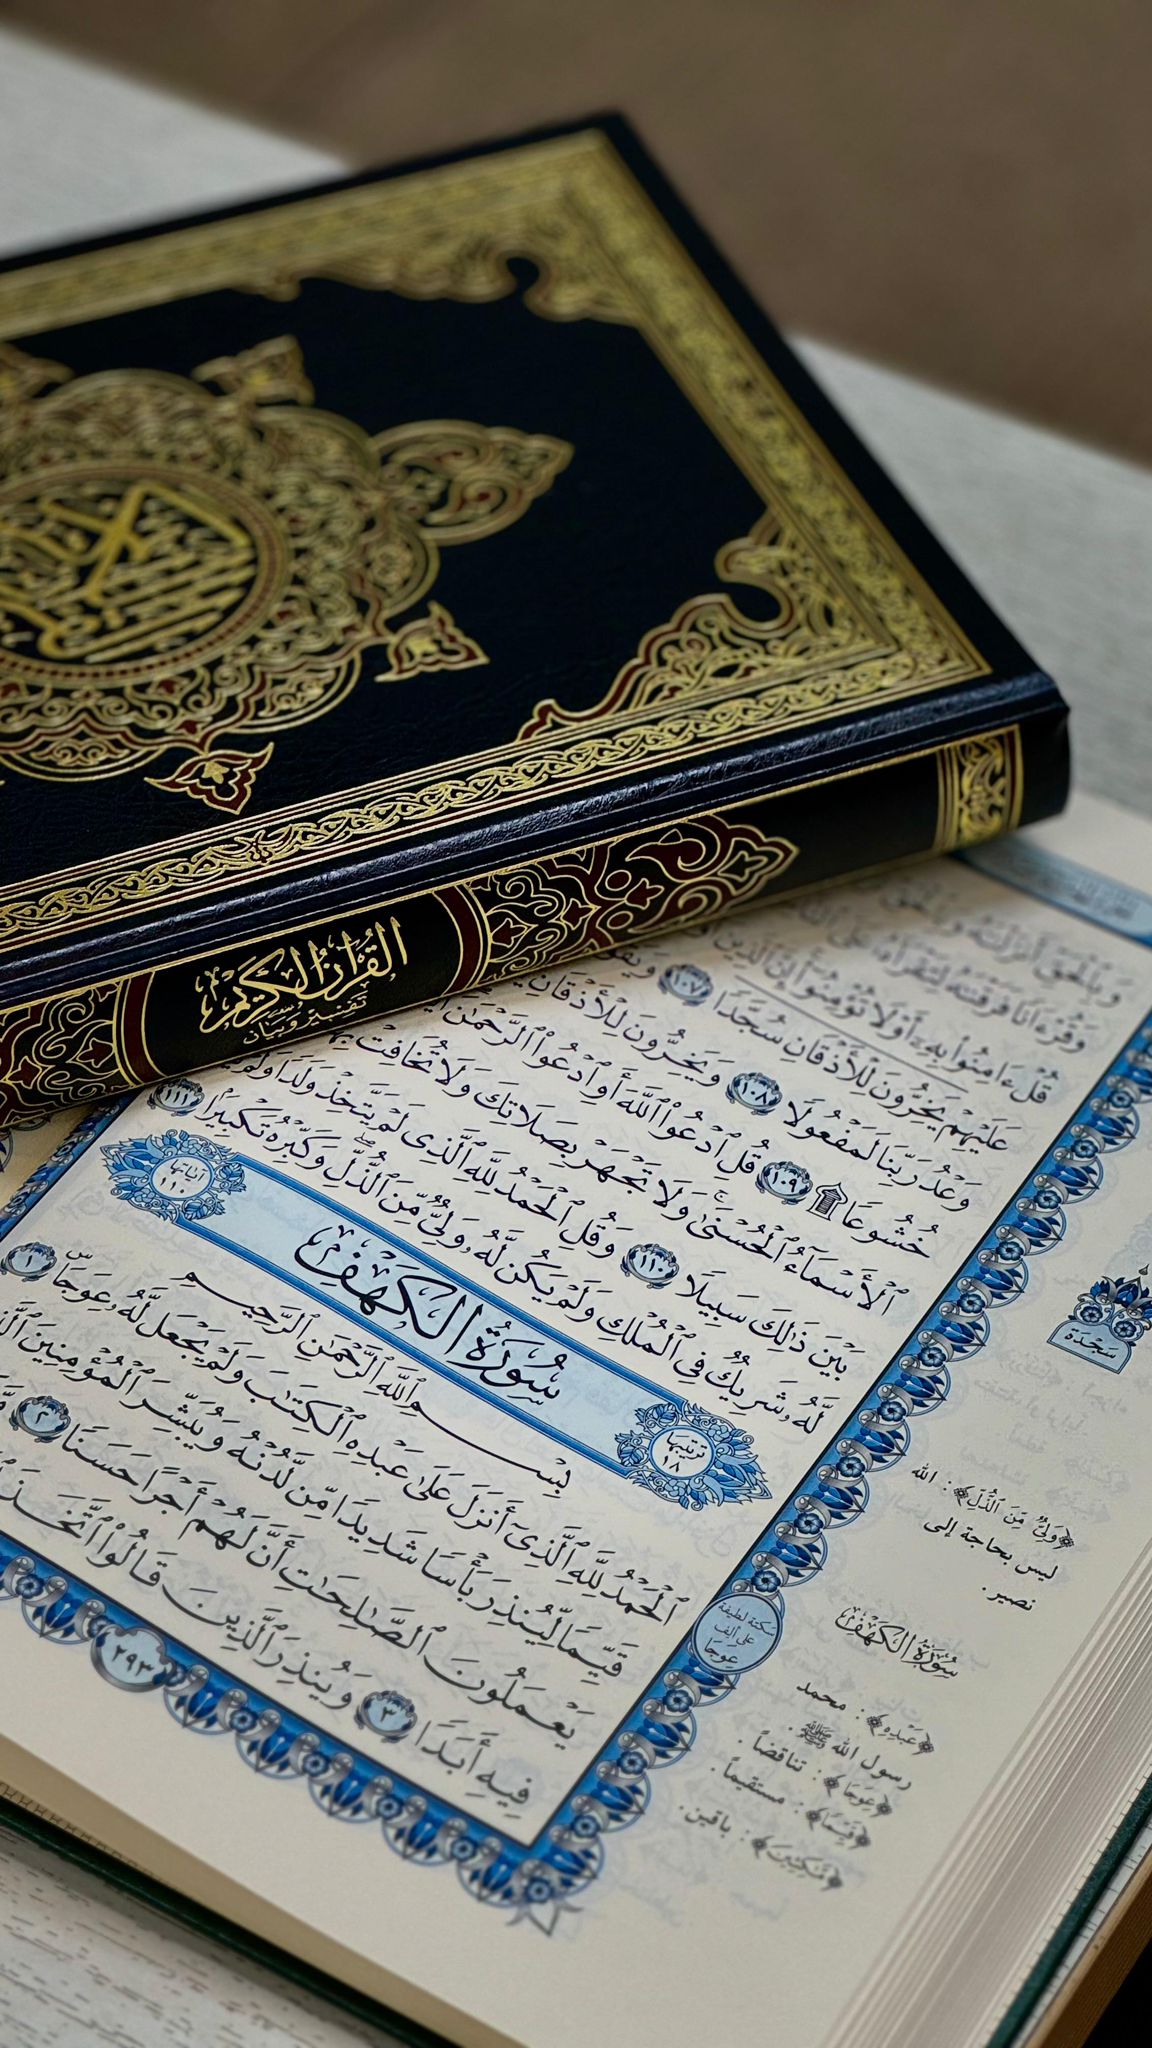 القرآن الكريم
تفسير وبيان
وَبِالْحَقِّ أَنزَلْنَٰهُ وَبِالْحَقِّ
وَقُرْءَانًا فَرَقْنَٰهُ لِتَقْرَأَهُۥ عَلَى النَّاسِ
قُلْ ءَامِنُوا۟ بِهِۦٓ أَوْ لَا تُؤْمِنُوٓا۟ إِنَّ الَّذِينَ
عَلَيْهِمْ يَخِرُّونَ لِلْأَذْقَانِ سُجَّدًا ١٠٧ وَيَقُولُونَ
وَعْدُ رَبِّنَا لَمَفْعُولًا ١٠٨ وَيَخِرُّونَ لِلْأَذْقَانِ
خُشُوعًا ۩ ١٠٩ قُلِ ٱدْعُوا۟ ٱللَّهَ أَوِ ٱدْعُوا۟ ٱلرَّحْمَٰنَ
ٱلْأَسْمَآءُ ٱلْحُسْنَىٰ ۚ وَلَا تَجْهَرْ بِصَلَاتِكَ وَلَا تُخَافِتْ بِهَا
بَيْنَ ذَٰلِكَ سَبِيلًا ١١٠ وَقُلِ ٱلْحَمْدُ لِلَّهِ ٱلَّذِى لَمْ يَتَّخِذْ وَلَدًا وَلَمْ
لَّهُۥ شَرِيكٌ فِى ٱلْمُلْكِ وَلَمْ يَكُن لَّهُۥ وَلِىٌّ مِّنَ ٱلذُّلِّ ۖ وَكَبِّرْهُ تَكْبِيرًۢا ١١١
ترتيبها ١٨
سُورَةُ الكَهْفِ
آياتها ١١٠
بِسْمِ ٱللَّهِ ٱلرَّحْمَٰنِ ٱلرَّحِيمِ
ٱلْحَمْدُ لِلَّهِ ٱلَّذِىٓ أَنزَلَ عَلَىٰ عَبْدِهِ ٱلْكِتَٰبَ وَلَمْ يَجْعَل لَّهُۥ عِوَجَاۜ ١
قَيِّمًا لِّيُنذِرَ بَأْسًا شَدِيدًا مِّن لَّدُنْهُ وَيُبَشِّرَ ٱلْمُؤْمِنِينَ ٱلَّذِينَ
يَعْمَلُونَ ٱلصَّٰلِحَٰتِ أَنَّ لَهُمْ أَجْرًا حَسَنًا ٢
فِيهِ أَبَدًا ٣ وَيُنذِرَ ٱلَّذِينَ قَالُوا۟ ٱتَّخَذَ
٢٩٣
سَجْدَة
﴿وَلِيٌّ مِنَ الذُّلِّ﴾: الله
ليس بحاجة إلى
نصير.
سُورَةُ الكَهْفِ
سكتة لطيفة
على ألف
عِوَجَا
﴿عَبْدِهِ﴾: محمد
رسول الله ﷺ.
﴿عِوَجَا﴾: تناقضاً.
﴿قَيِّمًا﴾: مستقيماً.
﴿مَّٰكِثِينَ﴾: باقين.